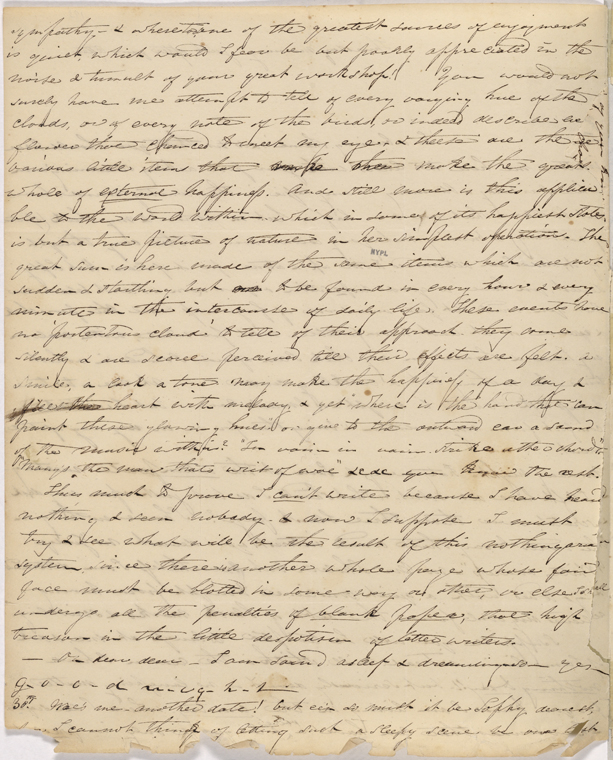 sympathy - & where one of the greatest sources of enjoyment
is quiet, which would I fear be but poorly appreciated in the
noise & tumult of your great workshop! You would not
surely have me attempt to tell of every varying hue of the
clouds, or of every note of the birds, or indeed describe each
flower that chanced to meet my eye, & these are the
various little items that make the great
whole of external happiness. And still more is this applica
ble to the world within which in some of its happiest states
is but a true picture of nature in her simplest The
great sum is here made of the same items which are not
sudden & startling but to be found in every hour & every
minute in the intercourse of daily life. These events have
no 'portentous cloud' to tell of their approach they come
silently & are scarce perceived till their effects are felt. a
smile, a look a tone may make the happiness of a day &
heart with melody, & yet where is the hand that can
paint these glowing hues or give to the outward ear a sound
of the music within? "In vain in vain strike other chords"
"the man that's writ of woe" &c &c you know the rest.
Thus much to prove I can't write because I have heard
nothing, & seen nobody - & now I suppose I must
try & see what will be the result of this nothingarian
system, since there is another whole page whose fair
face must be blotted in some way or other, or else I shall
undergo all the penalties of blank paper, that high
treason in the little despotism of letter writers.
- Oh dear, dear - I am sound asleep & dreaming so - yes -
g-o-o-d n-i-g-h-t -
30th Wae's me - another date! but e'en so must it be Sophy dearest,
I cannot think of letting such a sleepy scene be our last
NYPL